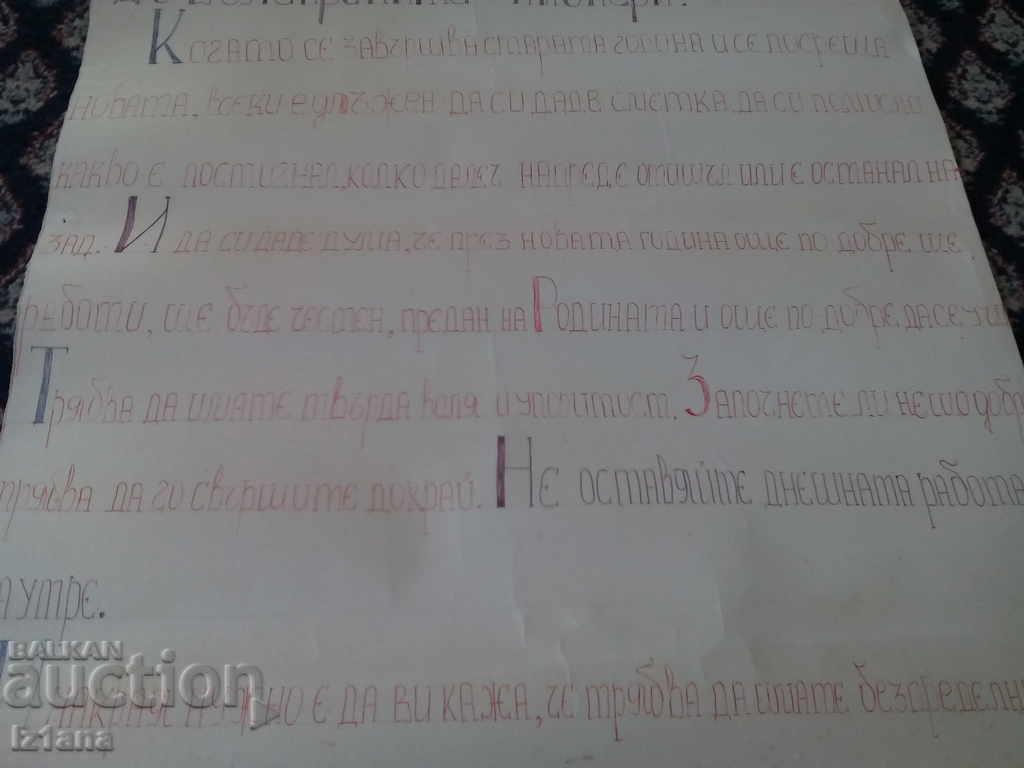 пионери!
Когато се завършва старата година и се посреща
новата, всеки е длъжен да си даде сметка, да си помисли
какво е постигнал, колко далеч напред е отишъл или е останал на-
зад. И да си даде дума, че през новата година още по добре ще
работи, ще бъде честен, предан на Родината и още по добре, да се учи
Трябва да имате твърда воля и упоритост. Започнете ли нещо добро
трябва да го свършите докрай. Не оставяйте днешната работа
а утре.
но е да ви кажа, че трябва да имате безпределн
BALKAN
auction
iz1ana